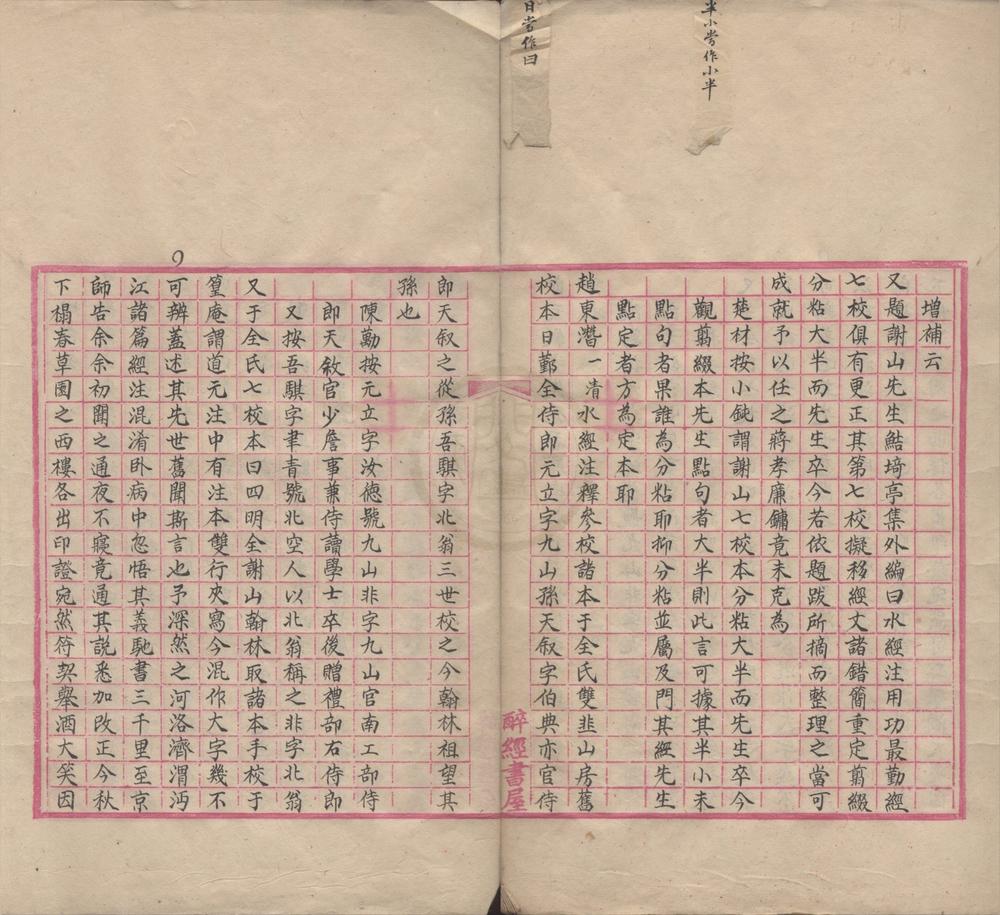 半小當作小半
日當作曰
增補云
又題謝山先生鮚埼亭集外編曰水經注用功最勤經
七校俱有更正其第七校擬移經文諸錯簡重定翦綴
分粘大半而先生卒今若依題跋所摘而整理之當可
成就予以任之蔣孝廉鏞竟未克為
楚材按小鈍謂謝山七校本分粘大半而先生卒今
觀翦綴本先生點句者大半則此言可據其半小未
點句者果誰為分粘耶抑分粘並屬及門其經先生
點定者方為定本耶
趙東潛一清水經注釋參校諸本于全氏雙韭山房舊
校本日鄞全侍郎元立字九山孫天叙字伯典亦官侍
醉經書屋
即天叙之從孫吾騏字北翁三世校之今翰林祖望其
孫也
陳勱按元立字汝德號九山非字九山官南工部侍
即天敘官少詹事兼侍讀學士卒後贈禮部右侍郎
又按吾騏字聿青號北空人以北翁稱之非字北翁
又于全氏七校本曰四明全謝山翰林取諸本手校于
篁庵謂道元注中有注本雙行夾寫今混作大字幾不
可辨蓋述其先世舊聞斯言也予深然之河洛濟渭沔
江諸篇經注混淆卧病中忽悟其義馳書三千里至京
師告余余初聞之通夜不寢竟通其說悉加改正今秋
下榻春草園之西樓各出印證宛然符契舉酒大笑因
9